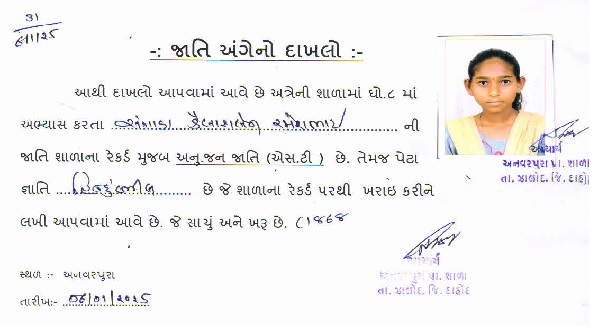 31
6/1/25
-: જાતિ અંગેનો દાખલો :-
આથી દાખલો આપવામાં આવે છે અત્રેની શાળામાં ધો.૮ માં
અભ્યાસ કરતા રમેશભાઇ ની
જાતિ શાળાના રેકર્ડ મુજબ અનુ.જન જાતિ (એસ.ટી ) છે. તેમજ પેટા
જ્ઞાતિ હિન્દુભીલ છે જે શાળાના રેકર્ડ પરથી ખરાઇ કરીને
લખી આપવામાં આવે છે. જે સાચું અને ખરૂ છે. (1868
આચાર્ય
અનવરપુરા પ્રા. શાળા
તા. ઝાલોદ. જિ. દાહોદ
આચાર્ય
અનવરપુરા પ્રા. શાળા
તા. ઝાલોદ. જિ. દાહોદ
સ્થળ :- અનવરપુરા
તારીખ:- ૦૬/૦૧/૨૦૨૫